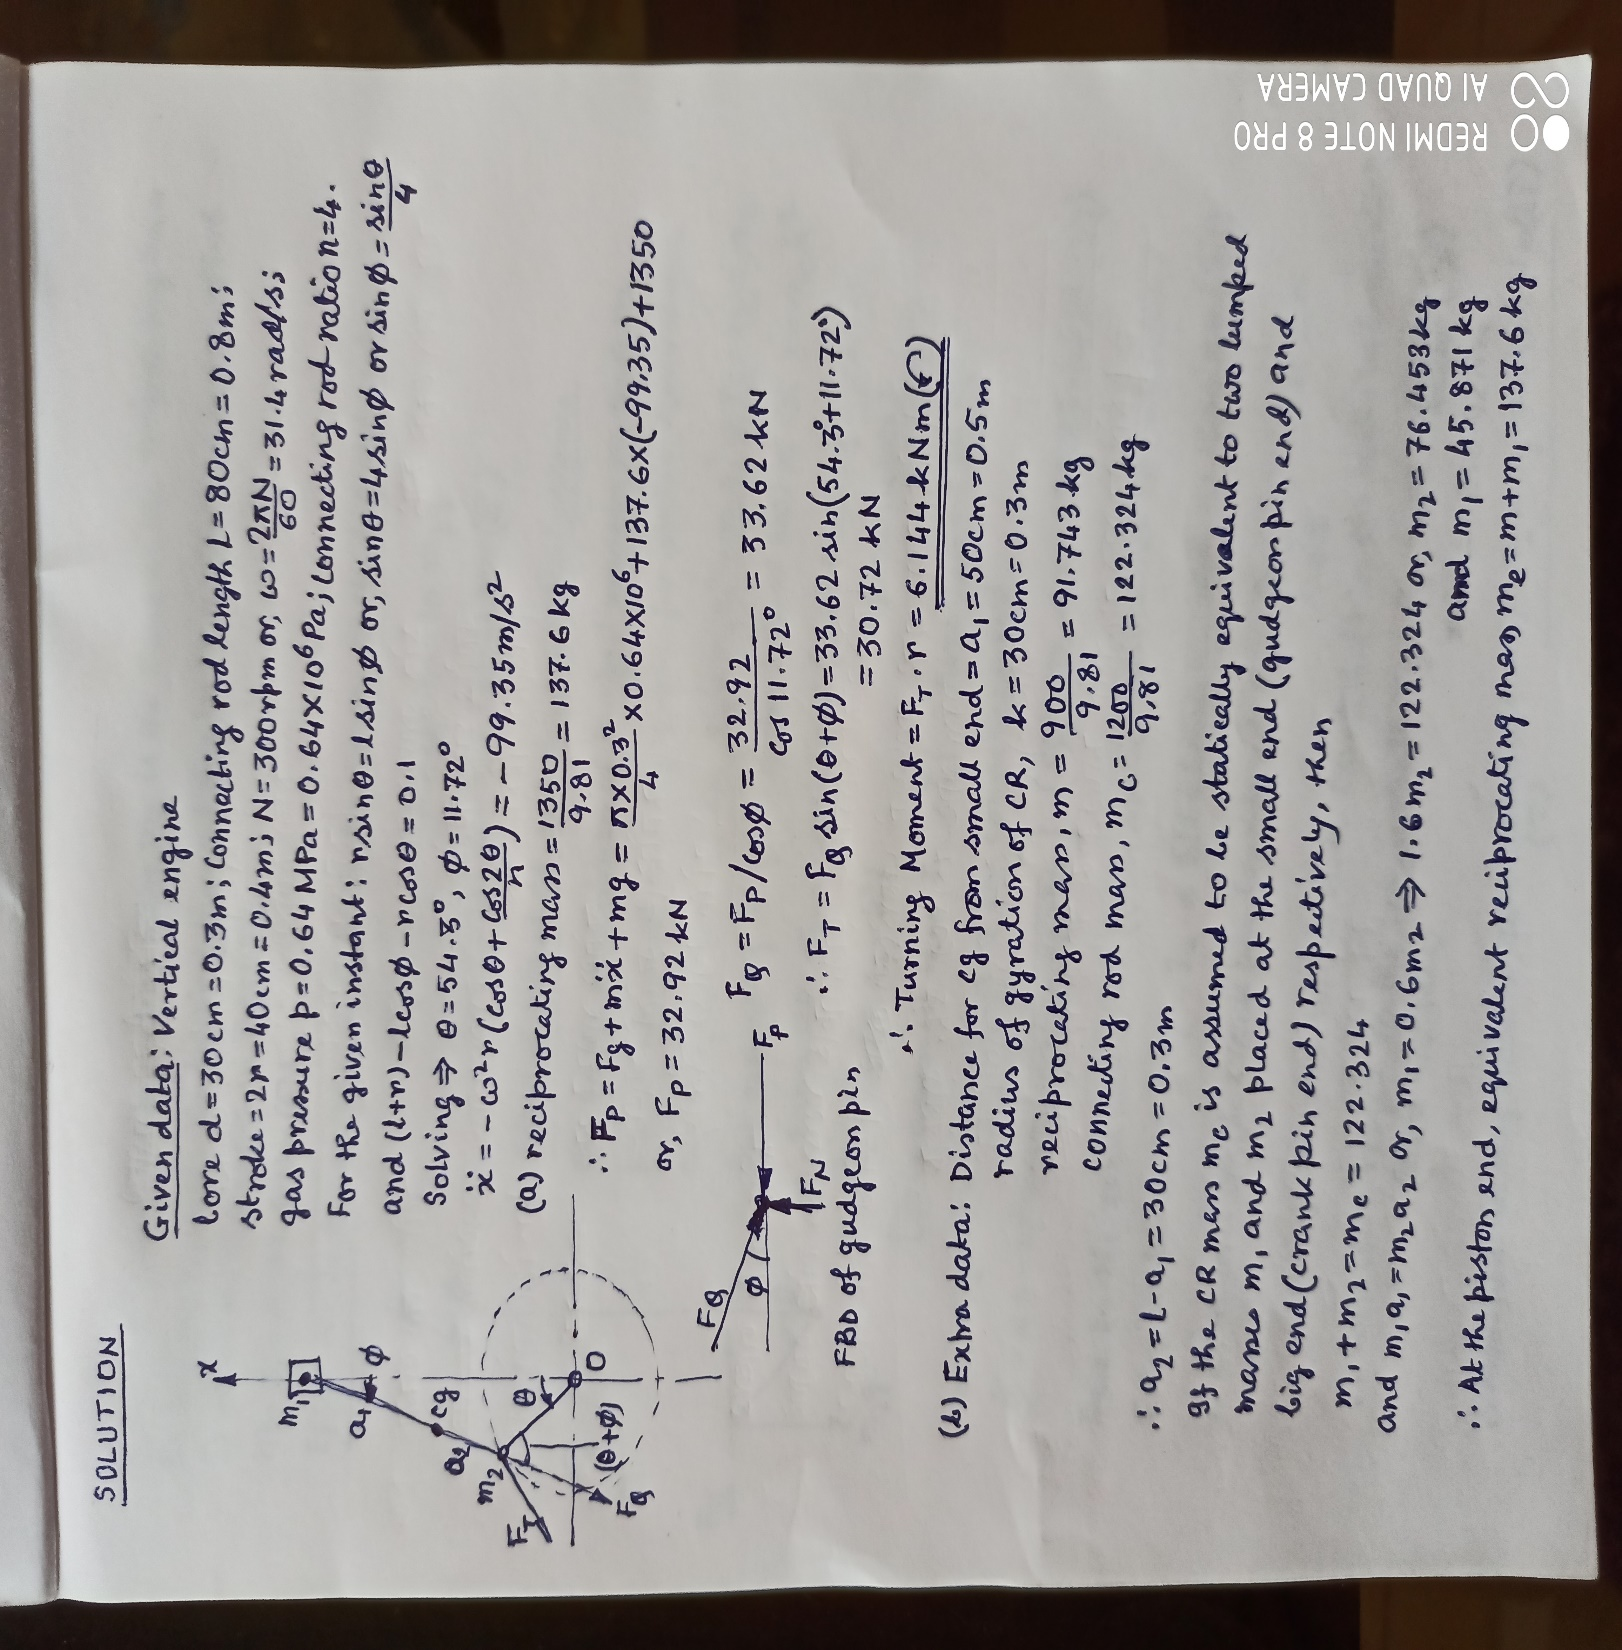 SOLUTION
Given data: Vertical engine
bore d=30cm=0.3m; connecting rod length L=80cm=0.8m;
stroke=2r=40cm=0.4m; N=300rpm or, ω=2πN/60=31.4rad/s;
gas pressure p=0.64MPa=0.64×10⁶Pa; connecting rod ratio n=4.
For the given instant: rsinθ=lsinϕ or, sinθ=4sinϕ or sinϕ=sinθ/4
and (l+r)-lcosϕ-rcosθ=0.1
Solving ⇒ θ=54.3°, ϕ=11.72°
ẍ=-ω²r(cosθ+cos2θ/n)=-99.35m/s²
(a) reciprocating mass=1350/9.81=137.6kg
∴ Fp=Fg+mẍ+mg=π×0.3²/4×0.64×10⁶+137.6×(-99.35)+1350
or, Fp=32.92kN
x
m₁
a₁
ϕ
cg
a₂
m₂
θ
O
(θ+ϕ)
FT
FQ
FQ
ϕ
Fp
FN
FQ=Fp/cosϕ=32.92/cos11.72°=33.62kN
FBD of gudgeon pin
∴ FT=FQ sin(θ+ϕ)=33.62sin(54.3°+11.72°)
=30.72kN
∴ Turning Moment=FT.r=6.144kNm(↶)
(b) Extra data: Distance for cg from small end=a₁=50cm=0.5m
radius of gyration of CR, k=30cm=0.3m
reciprocating mass, m=900/9.81=91.743kg
connecting rod mass, mc=1200/9.81=122.324kg
∴ a₂=L-a₁=30cm=0.3m
If the CR mass mc is assumed to be statically equivalent to two lumped
masses m₁ and m₂ placed at the small end (gudgeon pin end) and
big end(crank pin end) respectively, then
m₁+m₂=mc=122.324
and m₁a₁=m₂a₂ or, m₁=0.6m₂ ⇒ 1.6m₂=122.324 or, m₂=76.453kg
and m₁=45.871kg
∴ At the piston end, equivalent reciprocating mass me=m+m₁=137.6kg
REDMI NOTE 8 PRO
AI QUAD CAMERA